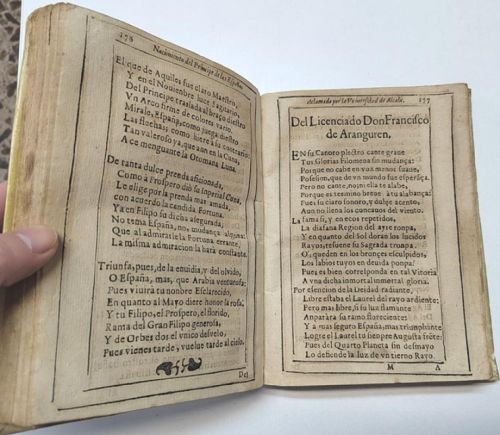 176 Nacimiento del Principe de las Españas
El que de Aquiles fue claro Maestro,
Y en el Nouiembre luce Sagitario,
Del Principe traslada al braço diestro
Vn Arco firme de colores vario.
Mirale, España, como juega diestro
Las flechas como hiere à su contrario:
Tan valeroso ya, que aun en la Cuna,
A ce menguante la Otomana Luna.
De tanta dulce prenda aficionada,
Como a Prospero diò su Imperial Cuna,
Le elige por la prenda mas amada,
con acuerdo la candida Fortuna.
Ya en Filipo su dicha assegurada,
No tema España, no, mudança alguna:
Que al admirarse la Fortuna errante,
La misma admiracion la hara constante.
Triunfa, pues, de la enuidia, y del oluido,
O España, mas, que Arabia venturosa:
Pues viuirà tu nonbre Esclarecido,
En quanto al Mayo diere honor la rosa.
Y tu Filipo, el Prospero, el florido,
Rama del Gran Filipo generosa,
Y de Orbes dos el vnico desvelo,
Pues vienes tarde, vuelue tarde al cielo.
Del
aclamado por la Vniuersidad de Alcalà. 177
Del Licenciado Don Francisco
de Aranguren,
EN su Canoro plectro cante graue
Tus Glorias Filomena sin mudança:
Porque no cabe en vn manos suaue,
Posesion, que de vn mundo fue esperãça.
Pero no cante, no; ni ella te alabe,
Porque es termino breue à tu alabança:
Pues su claro sonoro, y dulce acento,
Aun no llena los concauos del viento.
La fama si, y en ecos repetidos,
La diafana Region del ayre ronpa,
Y en quanto del Sol doran los lucidos
Rayos, resuene su Sagrada tronpa.
O, queden en los bronçes esculpidos,
Los labios tuyos en deuida ponpa:
Pues es bien corresponda en tal Vitoria
A vna dicha inmortal inmortal gloria.
Por esencion de la Deidad radiante,
Libre estaba el Laurel del rayo ardiente:
Pero mas libre, si su luz flamante
Anparàra su ramo floreciente:
Y a mas seguro España, mas triumphante
Logre el Laurel tu siempre Augusta frẽte:
Pues del Quarto Planeta sin desmayo
Lo defiende la luz de vn tierno Rayo.
M A